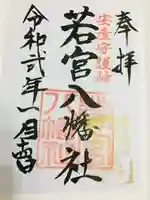 奉拝
安産守護神
若宮八幡社
令和弐年一月吉日